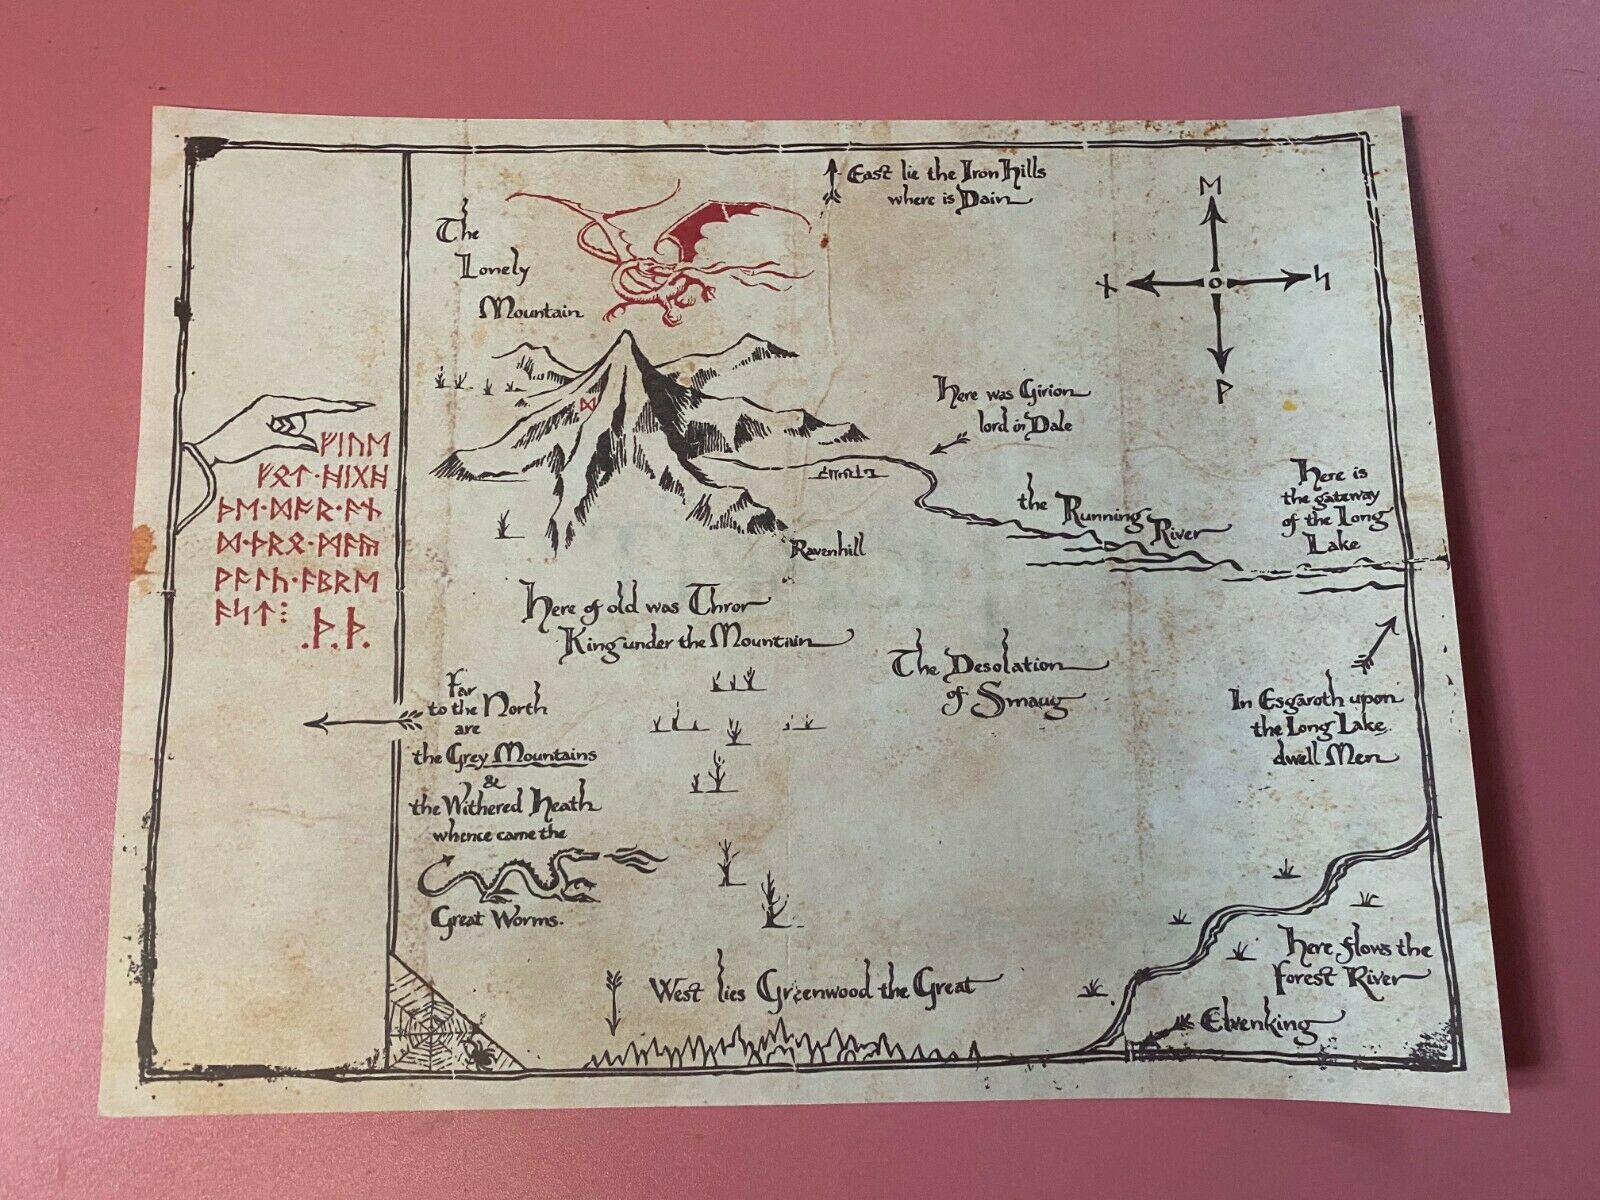 East lie the Iron Hills
where is Dain
ᛖ
ᚾ
ᛋ
ᚹ
The
Lonely
Mountain
ᛞ
Here was Girion
lord in Dale
ᚠᛁᚢᛖ
ᚠᛟᛏ·ᚻᛁᚷᚻ
ᚦᛖ·ᛞᚩᚱ·ᚫᚾ
ᛞ·ᚦᚱᛟ·ᛗᚫᚣ
ᚹᚫᛚᚳ·ᚫᛒᚱᛖ
ᚫᛋᛏ⁝
.ᚦ.ᚦ.
Here is
the gateway
of the Long
Lake
the Running River
Ravenhill
Here of old was Thror
King under the Mountain
The Desolation
of Smaug
Far
to the North
are
the Grey Mountains
&
the Withered Heath
whence came the
Great Worms.
In Esgaroth upon
the Long Lake
dwell Men
Here flows the
Forest River
Elvenking
West lies Greenwood the Great